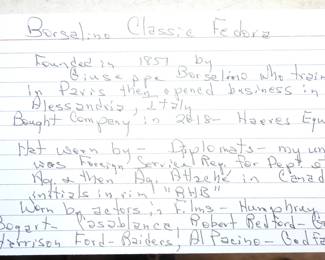 Borsalino Classic Fedora
Founded in 1857 by
Giuseppe Borsalino who train
in Paris then opened business in
Alessandria, Italy
Bought Company in 2018- Haeres Equ
Hat worn by - Diplomats - my un
was Foreign Service Rep. for Dept of
Ag. & then Ag. Attache in Canad
initials in rim "BHB"
Worn by actors in Films - Humphrey
Bogart - Casablanca, Robert Redford - G
Harrison Ford - Raiders, Al Pacino - Godfa